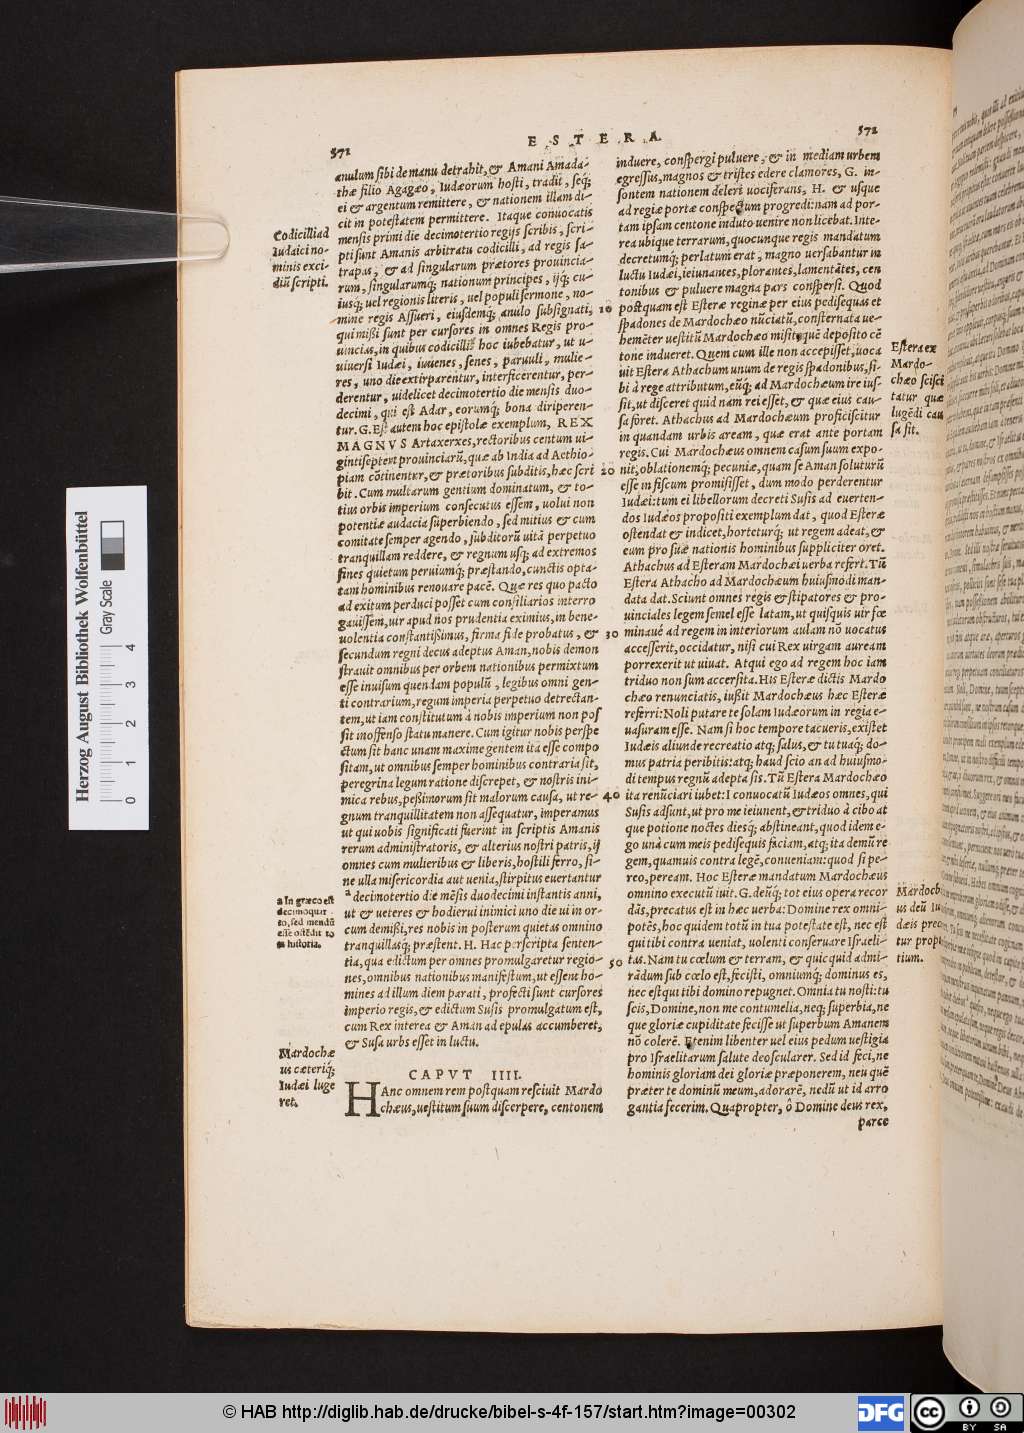 571
E S T E R A.
572
anulum sibi de manu detrahit, & Amani Amada-
thæ filio Agagæo, Iudæorum hosti, tradit, seq́;
ei & argentum remittere, & nationem illam di-
cit in potestatem permittere. Itaque conuocatis
mensis primi die decimotertio regijs scribis, scri-
pti sunt Amanis arbitratu codicilli, ad regis sa-
trapas, & ad singularum prætores prouincia-
rum, singularumq́; nationum principes, ijq́; cu-
iusq́; uel regionis literis, uel populi sermone, no-
mine regis Assueri, eiusdemq́; anulo subsignati,
qui mißi sunt per cursores in omnes Regis pro-
uincias, in quibus codicillis hoc iubebatur, ut u-
niuersi Iudæi, iuuenes, senes, paruuli, mulie-
res, uno die extirparentur, interficerentur, per-
derentur, uidelicet decimotertio die mensis duo-
decimi, qui est Adar, eorumq́; bona diriperen-
tur. G. Est autem hoc epistolæ exemplum, REX
MAGNVS Artaxerxes, rectoribus centum ui-
gintiseptem prouinciarū, quæ ab India ad Aethio-
piam cōtinentur, & prætoribus subditis, hæc scri
bit. Cum multarum gentium dominatum, & to-
tius orbis imperium consecutus essem, uolui non
potentiæ audacia superbiendo, sed mitius & cum
comitate semper agendo, subditorū uitā perpetuo
tranquillam reddere, & regnum usq́; ad extremos
fines quietum peruiumq́; præstando, cunctis opta-
tam hominibus renouare pacē. Quæ res quo pacto
ad exitum perduci posset cum consiliarios interro
gauissem, uir apud nos prudentia eximius, in bene-
uolentia constantißimus, firma fide probatus, &
secundum regni decus adeptus Aman, nobis demon
strauit omnibus per orbem nationibus permixtum
esse inuisum quendam populū, legibus omni gen-
ti contrarium, regum imperia perpetuo detrectan-
tem, ut iam constitutum à nobis imperium non pos
sit inoffenso statu manere. Cum igitur nobis perspe
ctum sit hanc unam maxime gentem ita esse compo
sitam, ut omnibus semper hominibus contraria sit,
peregrina legum ratione discrepet, & nostris ini-
mica rebus, peßimorum sit malorum causa, ut re-
gnum tranquillitatem non assequatur, imperamus
ut qui uobis significati fuerint in scriptis Amanis
rerum administratoris, & alterius nostri patris, ij
omnes cum mulieribus & liberis, hostili ferro, si-
ne ulla misericordia aut uenia, stirpitus euertantur
a decimotertio die mēsis duodecimi instantis anni,
ut & ueteres & hodierni inimici uno die ui in or-
cum demißi, res nobis in posterum quietas omnino
tranquillasq́; præstent. H. Hac perscripta senten-
tia, qua edictum per omnes promulgaretur regio-
nes, omnibus nationibus manifestum, ut essent ho-
mines ad illum diem parati, profecti sunt cursores
imperio regis, & edictum Susis promulgatum est,
cum Rex interea & Aman ad epulas accumberet,
& Susa urbs esset in luctu.
CAPVT IIII.
HAnc omnem rem postquam resciuit Mardo
chæus, uestitum suum discerpere, centonem
Codicilli ad
Iudaici no-
minis exci-
diū scripti.
a In græco est
decimoquar-
to, sed mendū
esse ostēdit to
ta historia.
Mardochæ
us cæteriq́;
Iudæi luge
ret.
10
20
30
40
50
induere, conspergi puluere, & in mediam urbem
egressus, magnos & tristes edere clamores, G. in-
sontem nationem deleri uociferans, H. & usque
ad regiæ portæ conspectum progredi: nam ad por-
tam ipsam centone induto uenire non licebat. Inte-
rea ubique terrarum, quocunque regis mandatum
decretumq́; perlatum erat, magno uersabantur in
luctu Iudæi, ieiunantes, plorantes, lamentātes, cen
tonibus & puluere magna pars conspersi. Quod
postquam est Esteræ reginæ per eius pedisequas et
spadones de Mardochæo nūciatū, consternata ue-
hemēter uestitū Mardochæo misit, quē deposito cē
tone indueret. Quem cum ille non accepisset, uoca
uit Estera Athachum unum de regis spadonibus, si-
bi à rege attributum, eūq́; ad Mardochæum ire ius-
sit, ut disceret quid nam rei esset, & quæ eius cau-
sa foret. Athachus ad Mardochæum proficiscitur
in quandam urbis aream, quæ erat ante portam
regis. Cui Mardochæus omnem casum suum expo-
nit, oblationemq́; pecuniæ, quam se Aman soluturū
esse in fiscum promisisset, dum modo perderentur
Iudæi: tum ei libellorum decreti Susis ad euerten-
dos Iudæos propositi exemplum dat, quod Esteræ
ostendat & indicet, horteturq́; ut regem adeat, &
eum pro suæ nationis hominibus suppliciter oret.
Athachus ad Esteram Mardochæi uerba refert. Tū
Estera Athacho ad Mardochæum huiusmodi man-
data dat. Sciunt omnes regis & stipatores & pro-
uinciales legem semel esse latam, ut quisquis uir fœ
minaué ad regem in interiorum aulam nō uocatus
accesserit, occidatur, nisi cui Rex uirgam auream
porrexerit ut uiuat. Atqui ego ad regem hoc iam
triduo non sum accersita. His Esteræ dictis Mardo
chæo renunciatis, iußit Mardochæus hæc Esteræ
referri: Noli putare te solam Iudæorum in regia e-
uasuram esse. Nam si hoc tempore tacueris, existet
Iudæis aliunde recreatio atq́; salus, & tu tuaq́; do-
mus patria peribitis: atq́; haud scio an ad huiusmo-
di tempus regnū adepta sis. Tū Estera Mardochæo
ita renūciari iubet: I conuocatū Iudæos omnes, qui
Susis adsunt, ut pro me ieiunent, & triduo à cibo at
que potione noctes diesq́; abstineant, quod idem e-
go unà cum meis pedisequis faciam, atq́; ita demū re
gem, quamuis contra legē, conueniam: quod si pe-
reo, peream. Hoc Esteræ mandatum Mardochæus
omnino executū iuit. G. deūq́; tot eius opera recor
dās, precatus est in hæc uerba: Domine rex omni-
potēs, hoc quidem totū in tua potestate est, nec est
qui tibi contra ueniat, uolenti conseruare Israeli-
tas. Nam tu cœlum & terram, & quicquid admi-
rādum sub cœlo est, fecisti, omniumq́; dominus es,
nec est qui tibi domino repugnet. Omnia tu nosti: tu
scis, Domine, non me contumelia, neq́; superbia, ne
que gloriæ cupiditate fecisse ut superbum Amanem
nō colerē. Etenim libenter uel eius pedum uestigia
pro Israelitarum salute deoscularer. Sed id feci, ne
hominis gloriam dei gloriæ præponerem, neu quē
præter te dominū meum, adorarē, nedū ut id arro
gantia fecerim. Quapropter, ô Domine deus rex,
parce
Estera ex
Mardo-
chæo sciscí
tatur quæ
lugēdi cau
sa sit.
Mardoch
us deū Iu
dæis prec
tur propi
tium.
Herzog August Bibliothek Wolfenbüttel
Gray Scale
0 1 2 3 4
© HAB http://diglib.hab.de/drucke/bibel-s-4f-157/start.htm?image=00302
DFG
cc
BY SA